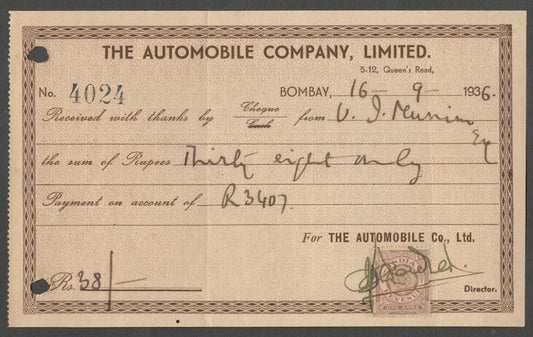 THE AUTOMOBILE COMPANY, LIMITED.
5-12, Queen's Road,
No. 4024 BOMBAY, 16-9-1936.
Received with thanks by Cheque Cash from V. J.
Esq
the sum of Rupees Thirty eight only
Payment on account of R3407.
For THE AUTOMOBILE Co., Ltd.
INDIA
REVENUE
ONE ANNA
Rs. 38/—
Director.